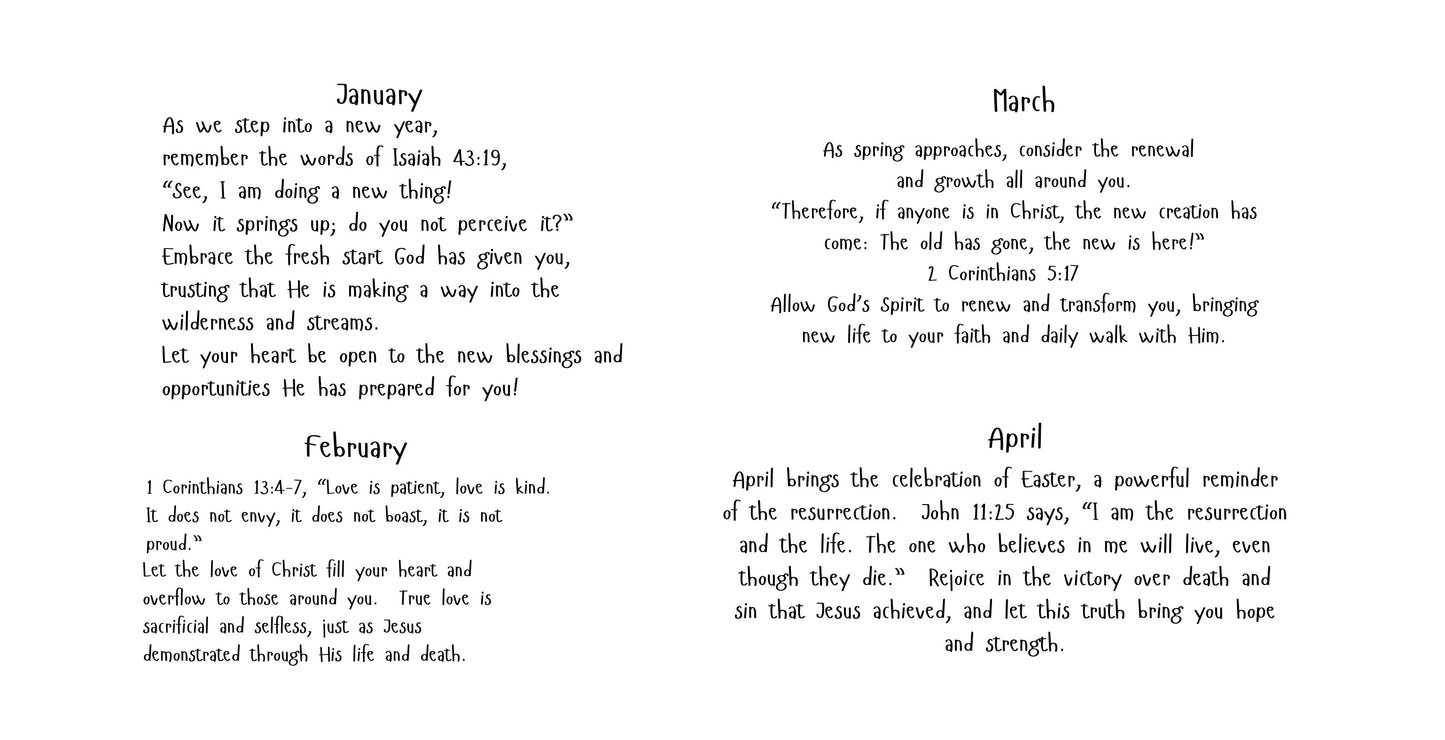 January
As we step into a new year,
remember the words of Isaiah 43:19,
“See, I am doing a new thing!
Now it springs up; do you not perceive it?”
Embrace the fresh start God has given you,
trusting that He is making a way into the
wilderness and streams.
Let your heart be open to the new blessings and
opportunities He has prepared for you!
February
1 Corinthians 13:4-7, “Love is patient, love is kind.
It does not envy, it does not boast, it is not
proud.”
Let the love of Christ fill your heart and
overflow to those around you. True love is
sacrificial and selfless, just as Jesus
demonstrated through His life and death.
March
As spring approaches, consider the renewal
and growth all around you.
“Therefore, if anyone is in Christ, the new creation has
come: The old has gone, the new is here!”
2 Corinthians 5:17
Allow God’s Spirit to renew and transform you, bringing
new life to your faith and daily walk with Him.
April
April brings the celebration of Easter, a powerful reminder
of the resurrection. John 11:25 says, “I am the resurrection
and the life. The one who believes in me will live, even
though they die.” Rejoice in the victory over death and
sin that Jesus achieved, and let this truth bring you hope
and strength.